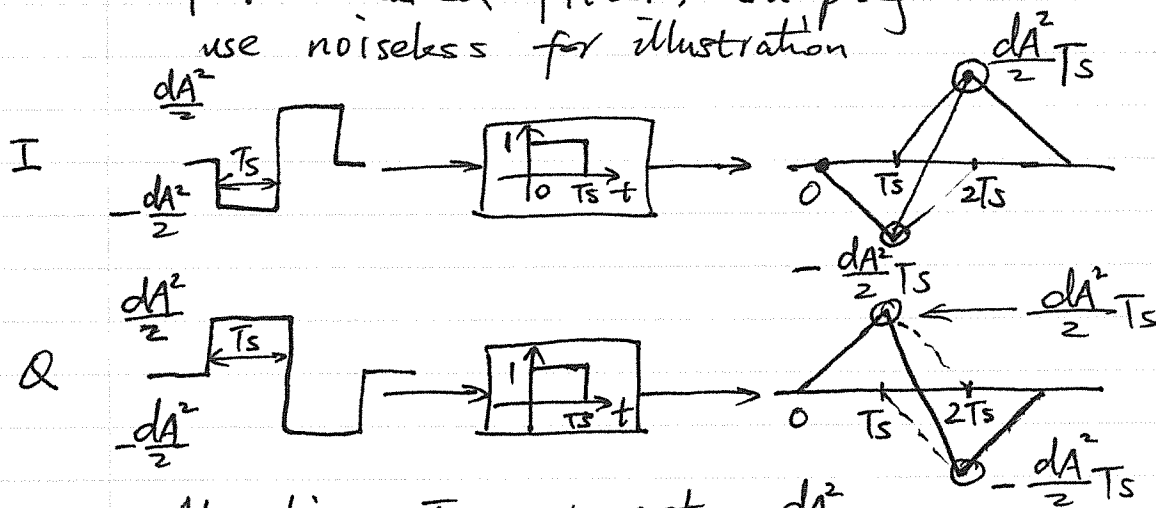 use noiseless for illustration
dA²/2
I
Ts
-dA²/2
1
0 Ts t
dA²/2 Ts
0 Ts 2Ts
-dA²/2 Ts
dA²/2
Q
Ts
-dA²/2
1
Ts t
dA²/2 Ts
0 Ts 2Ts
-dA²/2 Ts
dA²